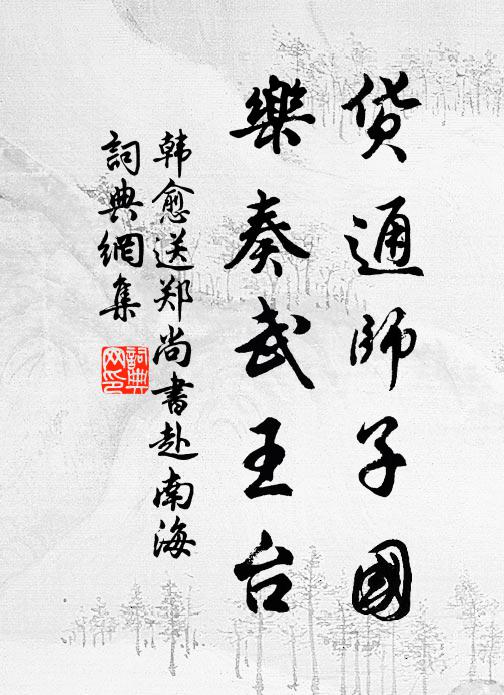 货通師子國
樂奏武王台
韩愈送郑尚書赴南海
詞典網集
詞典网印